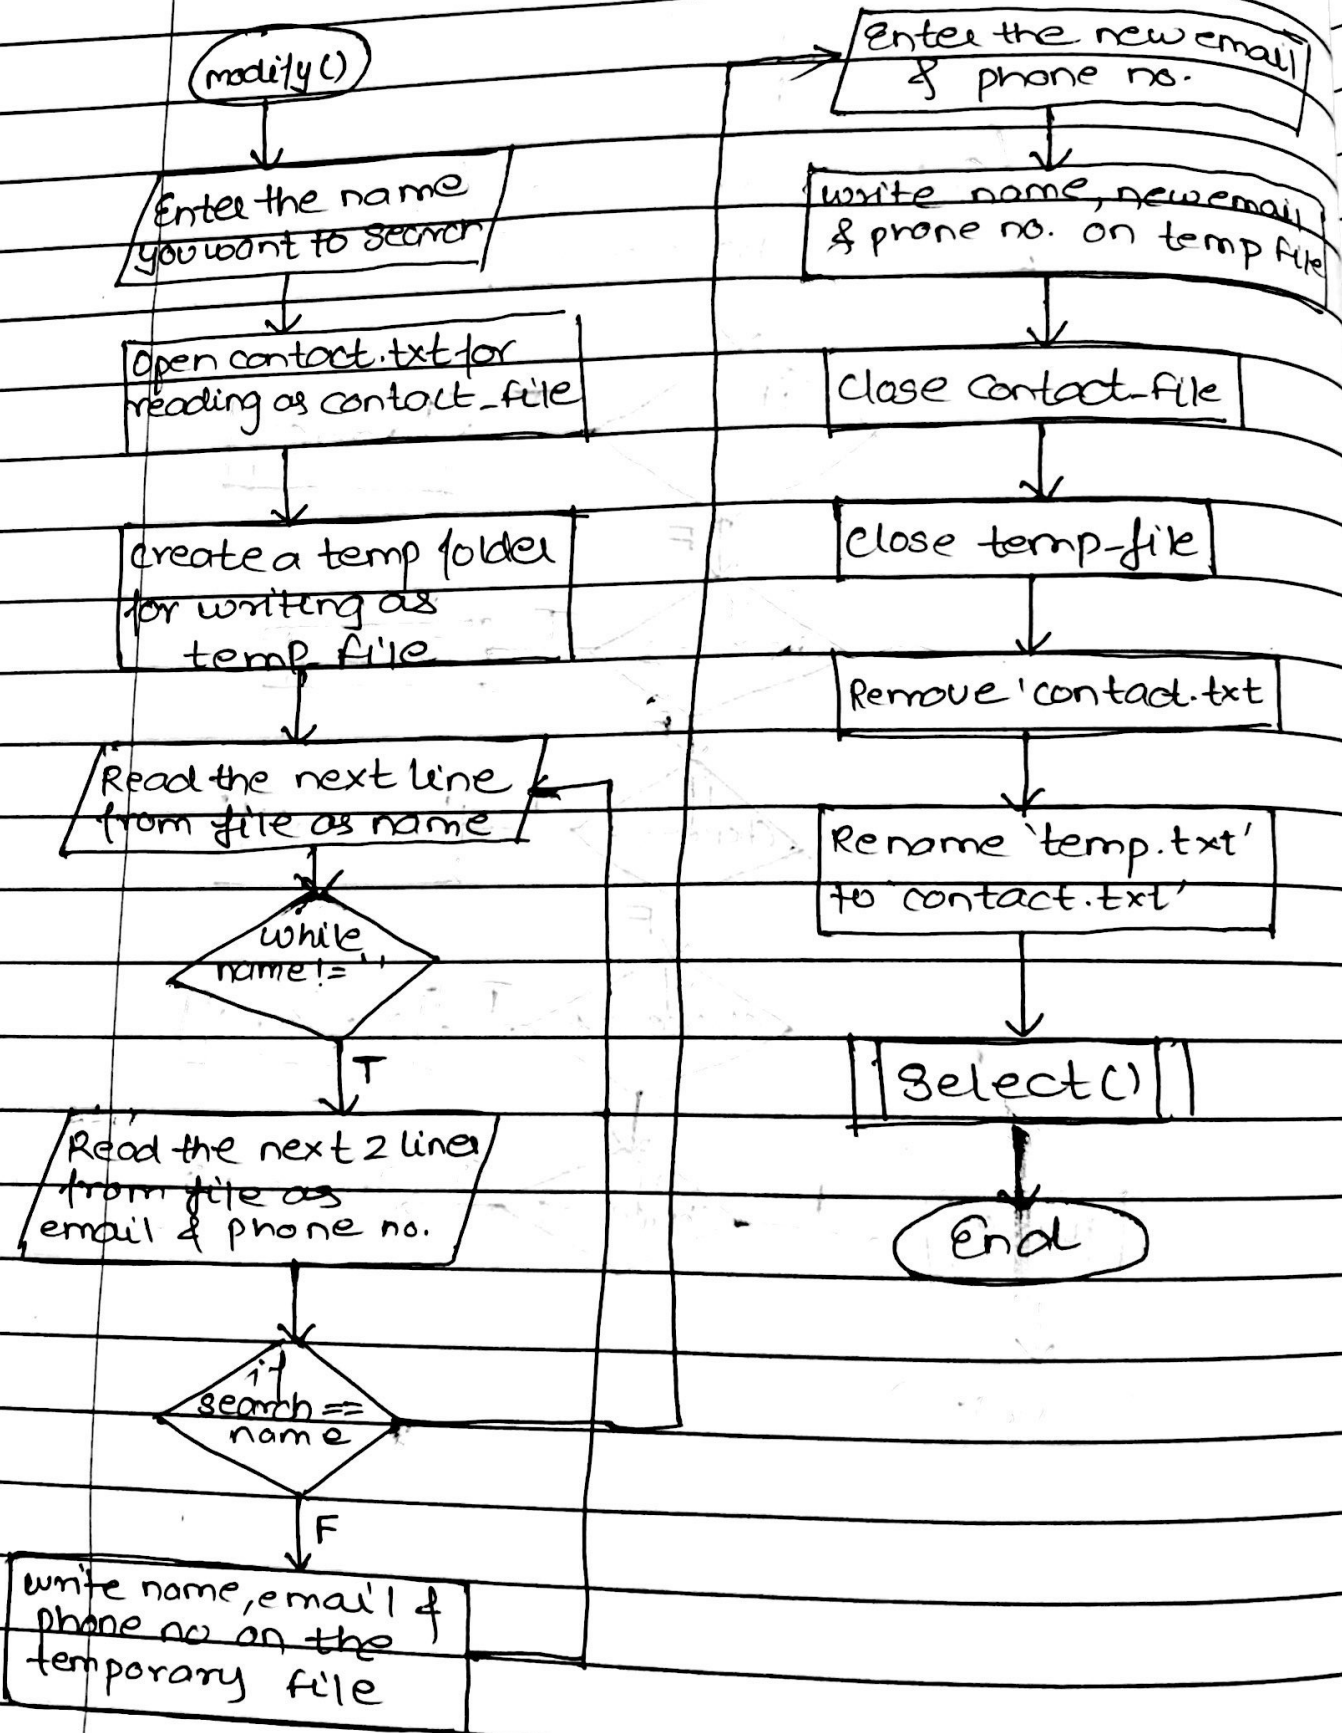 modify()
Enter the name
you want to search
open contact.txt for
reading as contact_file
create a temp folder
for writing as
temp_file
Read the next line
from file as name
while
name != ''
T
Read the next 2 lines
from file as
email & phone no.
if
search ==
name
F
write name, email &
phone no on the
temporary file
Enter the new email
& phone no.
write name, new email
& phone no. on temp file
Close Contact_file
Close temp-file
Remove 'contact.txt
Rename 'temp.txt'
to 'contact.txt'
Select()
End